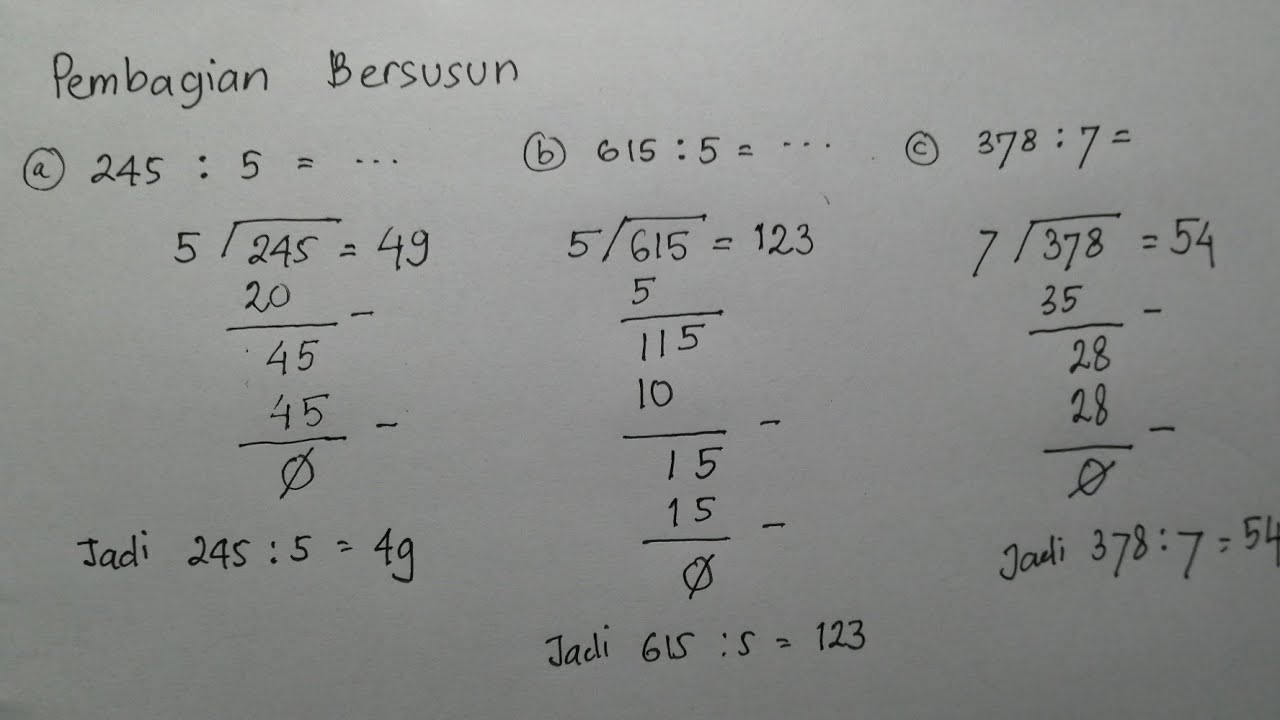 Pembagian Bersusun
(a) 245 : 5 = ...
5 / 245 = 49
20 -
45
45 -
0
Jadi 245 : 5 = 49
(b) 615 : 5 = ...
5 / 615 = 123
5
115
10 -
15
15 -
0
Jadi 615 : 5 = 123
(c) 378 : 7 =
7 / 378 = 54
35 -
28
28 -
0
Jadi 378 : 7 = 54